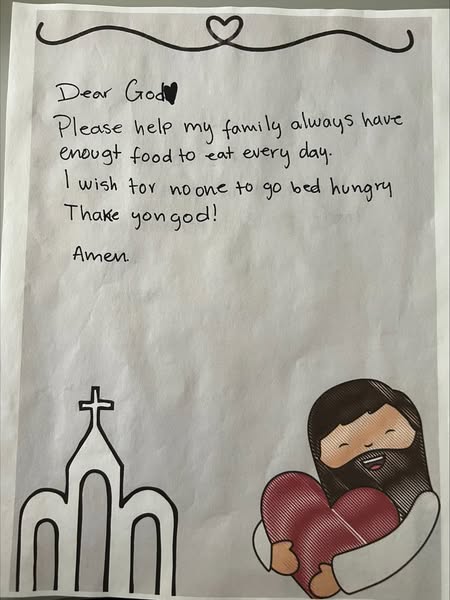 Dear God
Please help my family always have
enougt food to eat every day.
I wish for no one to go bed hungry
Thake yon god!
Amen.